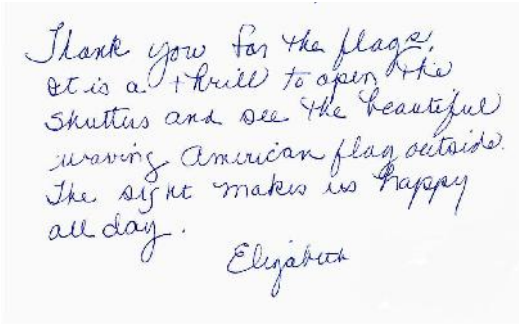 Thank you for the flags.
It is a thrill to open the
shutters and see the beautiful
waving American flag outside.
The sight makes us happy
all day.
Elizabeth